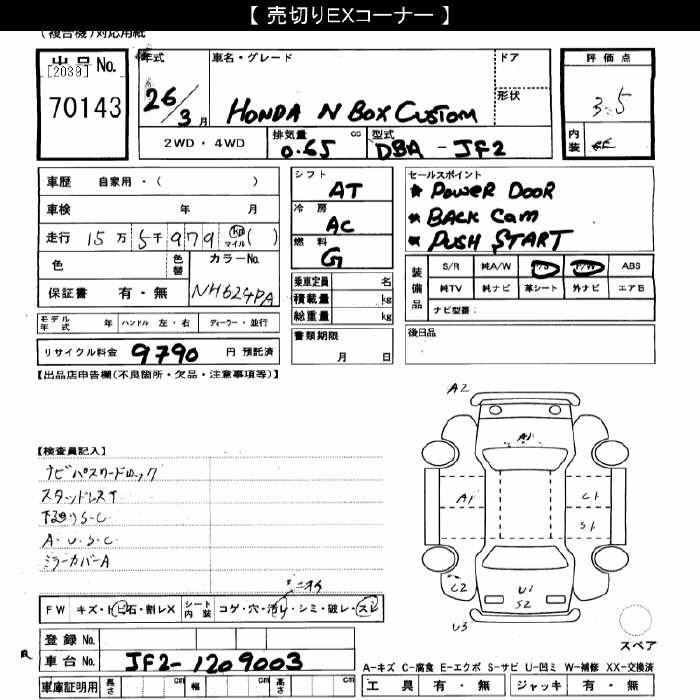 【 売切りEXコーナー 】
(複合機)対応用紙
出品 No.
[2039]
70143
年式
26/3 月
車名・グレード
HONDA N BOX CUSTOM
ドア
形状
評価点
3.5
内装
2WD・4WD
排気量 cc
0.65
型式
DBA - JF2
車歴 自家用・( )
車検 年 月
走行 15万 5千 979 km マイル ( )
色 色替 カラーNo.
保証書 有・無 NH624PA
モデル年式 年 ハンドル 左・右 ディーラー・並行
リサイクル料金 9790 円 預託済
シフト
AT
冷房
AC
燃料
G
乗車定員 名
積載量 kg
総重量 kg
書類期限
月 日
セールスポイント
* POWER DOOR
* BACK CAM
* PUSH START
装備品
S/R 純A/W P/S P/W ABS
純TV 純ナビ 革シート 外ナビ エアB
ナビ型番:
後日品
【出品店申告欄(不良箇所・欠品・注意事項等)】
【検査員記入】
ナビパスワードロック
スタッドレスT
下廻りS・C
A・U・S・C
ミラーカバーA
A2
A1
A1
C1
S1
C2
U1
S2
U3
スペア
FW キズ・トビ石・割レX シート内装 コゲ・穴・汚レ・シミ・破レ・スレ
登録 No.
車台 No. JF2-1209003
車庫証明用 長さ cm 幅 cm 高さ cm
A-キズ C-腐食 E-エクボ S-サビ U-凹ミ W-補修 XX-交換済
工具 有・無 ジャッキ 有・無